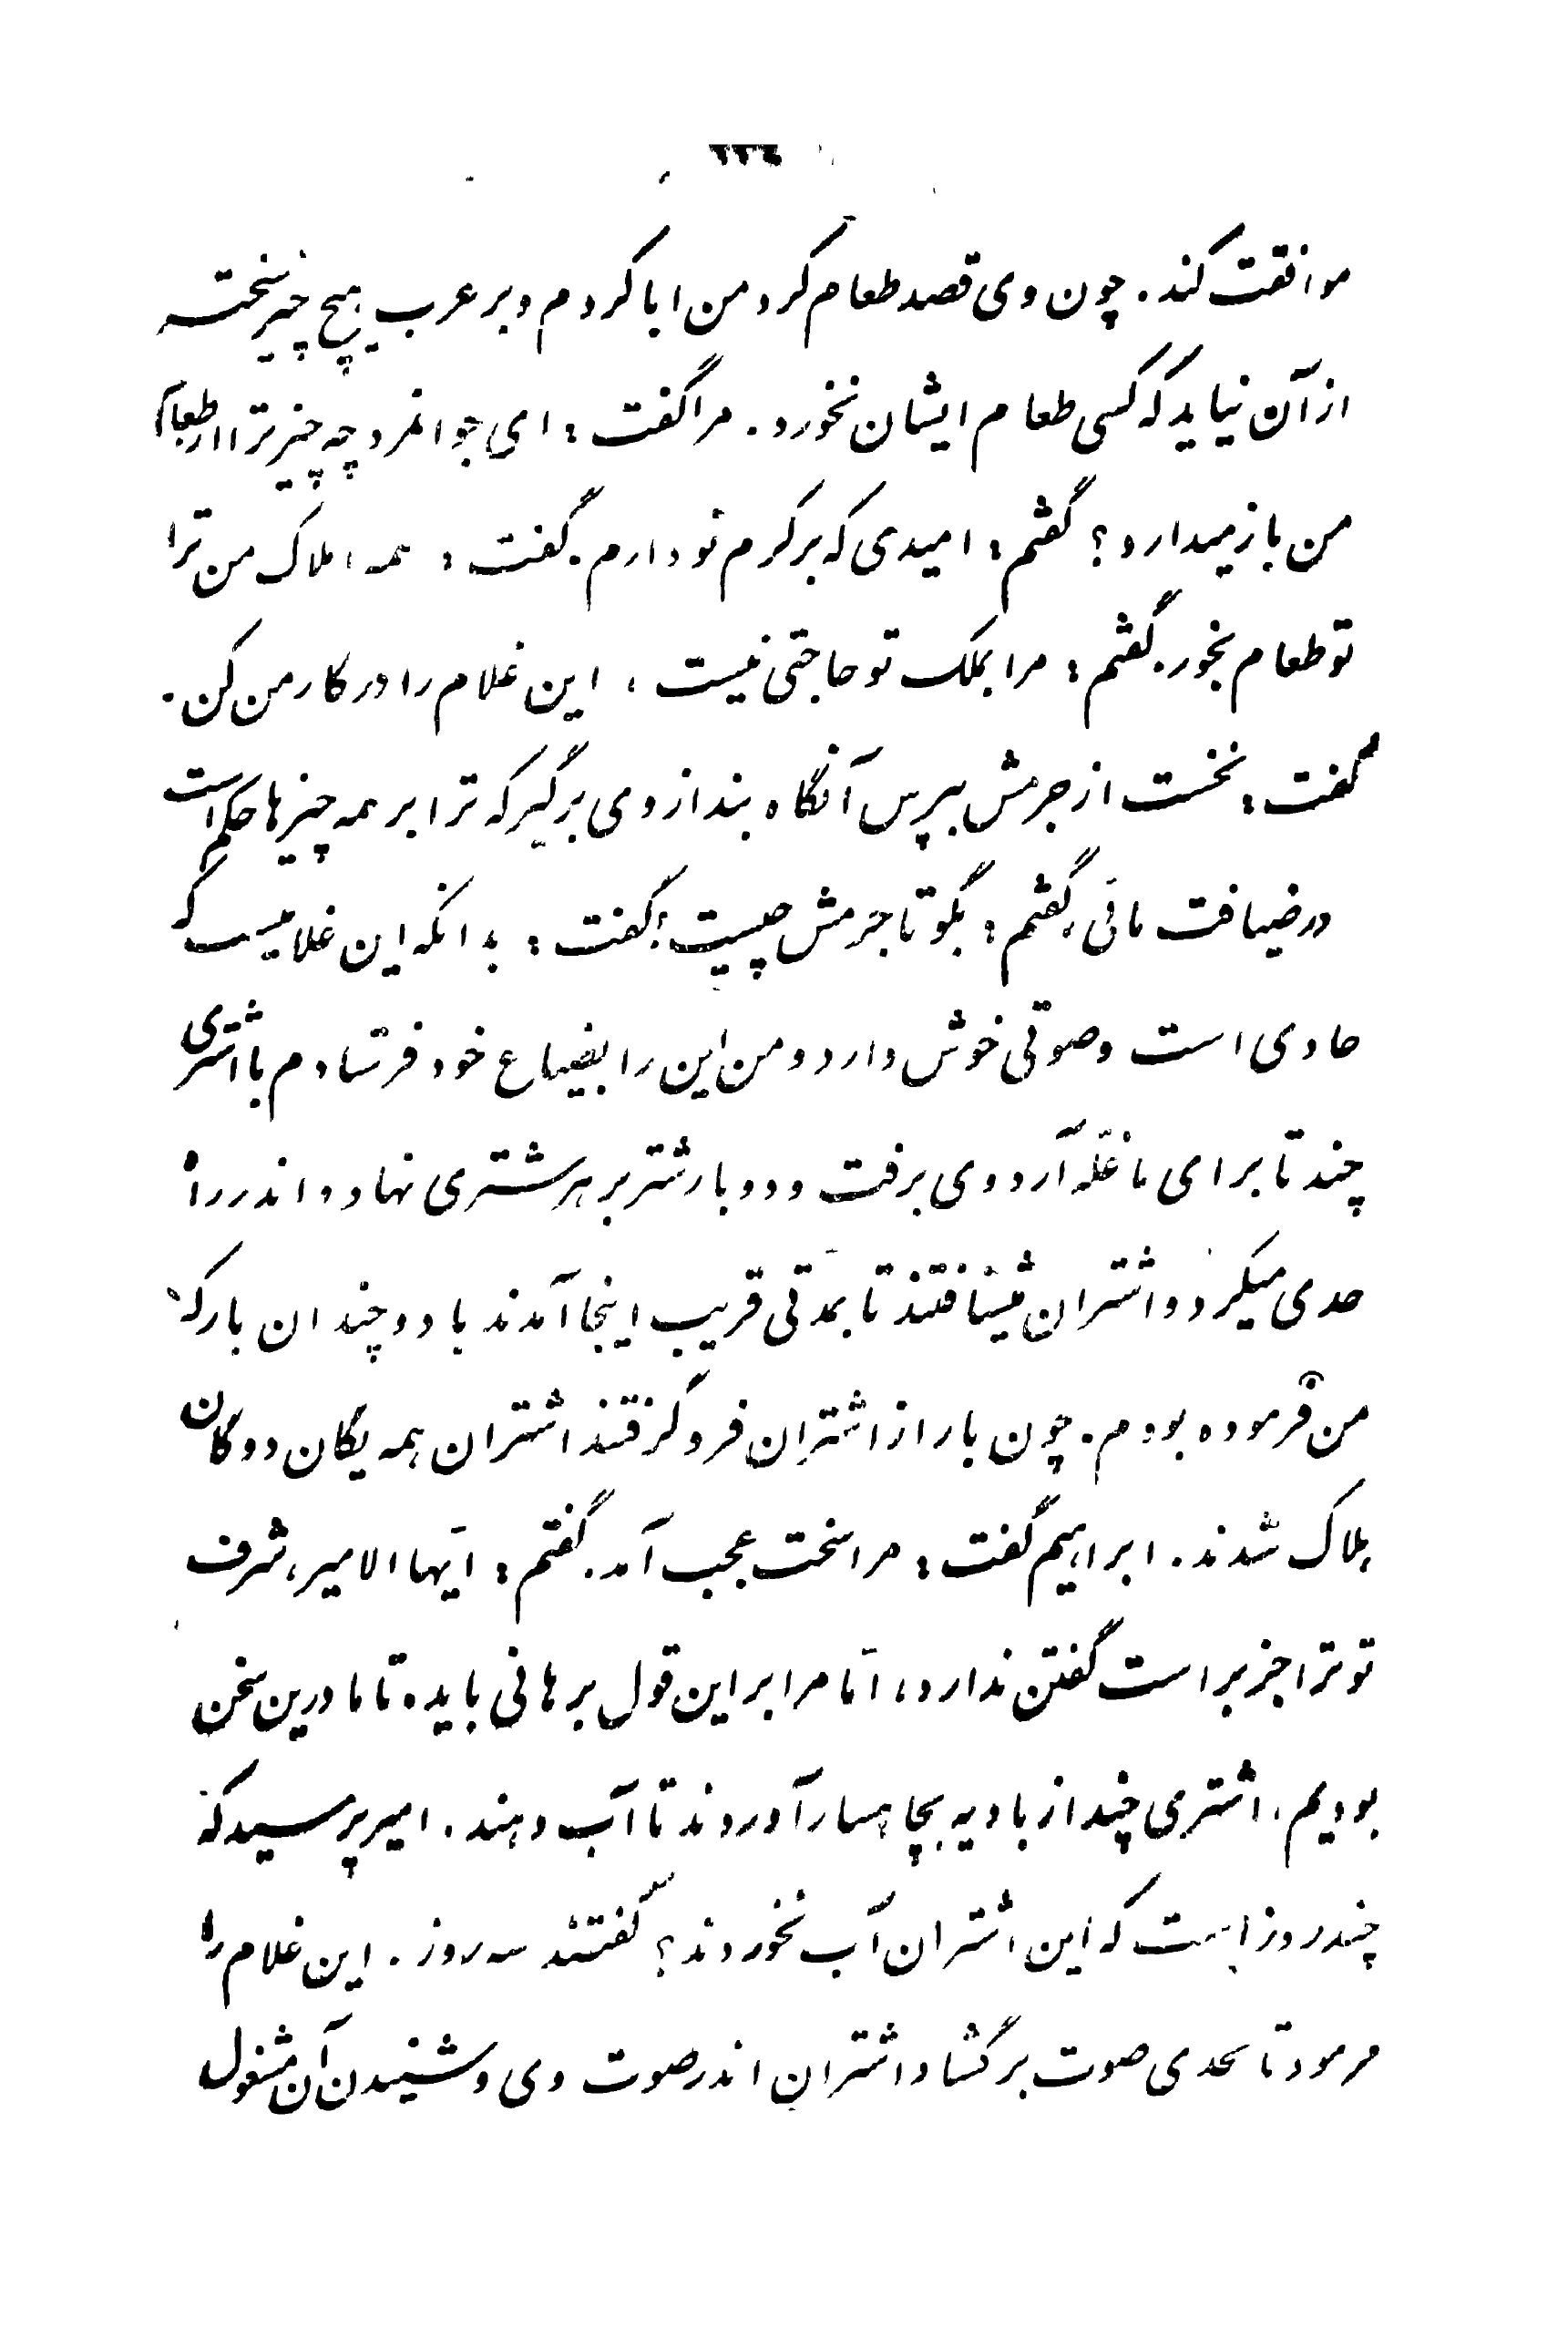 ۲۲۴
موافقت کند. چون وی قصد طعام کرد من ابا کردم و بر عرب هیچ چیز سخت‌تر
از آن نیاید که کسی طعام ایشان نخورد. مرا گفت: ای جوانمرد چه چیز ترا از طعام
من باز میدارد؟ گفتم: امیدی که بر کرم تو دارم. گفت: همه املاک من ترا
تو طعام بخور. گفتم: مرا بملک تو حاجتی نیست، این غلام را در کار من کن.
گفت: نخست از جرمش بپرس آنگاه بند از وی برگیر که ترا بر همه چیزها حکم است
در ضیافت مائی. گفتم: بگو تا جرمش چیست؟ گفت: بدانکه این غلامیست که
حادی است و صوتی خوش دارد و من این را بضیاع خود فرستادم با اشتری
چند تا برای ما غلّه آرد وی برفت و دو بار شتر بر هر شتری نهاد و اندر راه
حدی میکرد و اشتران میشتافتند تا بمدّتی قریب اینجا آمدند با دو چندان بار که
من فرموده بودم. چون بار از اشتران فرو گرفتند اشتران همه یگان دوگان
هلاک شدند. ابراهیم گفت: مرا سخت عجب آمد. گفتم: ایّها الامیر، شرف
تو ترا جز براست گفتن ندارد، امّا مرا بر این قول برهانی باید، تا ما درین سخن
بودیم، اشتری چند از بادیه بچاهسار آوردند تا آب دهند. امیر پرسید که
چند روز است که این اشتران آب نخوردند؟ گفتند سه روز. این غلام را
فرمود تا بحدی صوت برگشاد اشتران اندر صوت وی و شنیدن آن مشغول